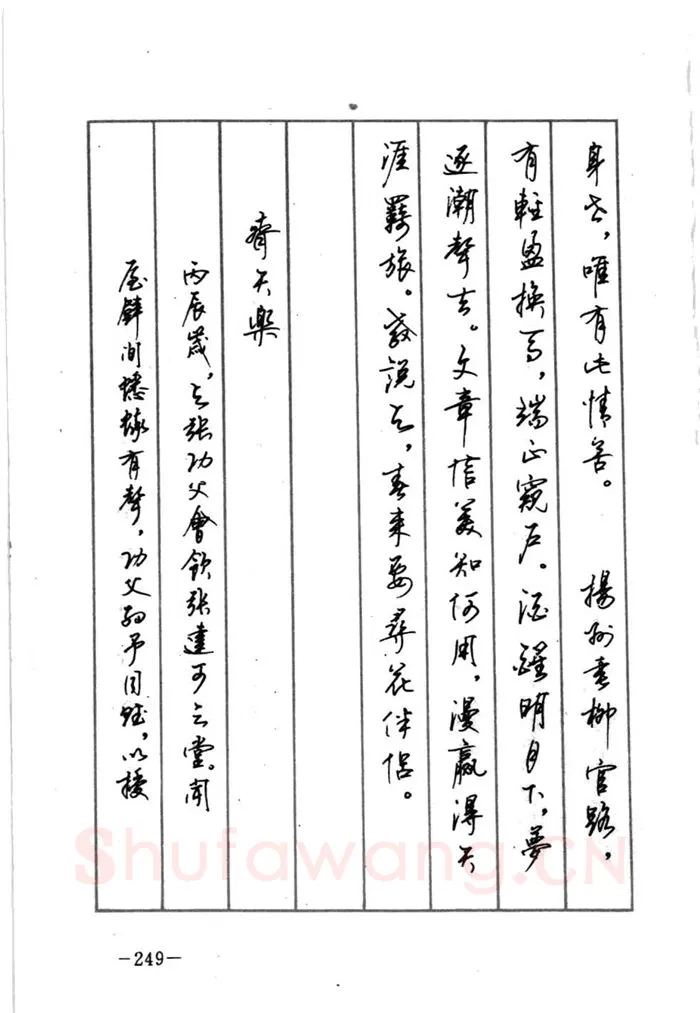 身世，唯有此情苦。　揚州垂柳官路，
有輕盈換馬，端正窺戶。酒醒明月下，夢
逐潮聲去。文章信美知何用，漫贏得天
涯羈旅。教說與，春來要尋花伴侶。
齊天樂
丙辰歲，與張功父會飲張達可之堂。聞
屋壁間蟋蟀有聲，功父約予同賦，以授
-249-
Shufawang.CN